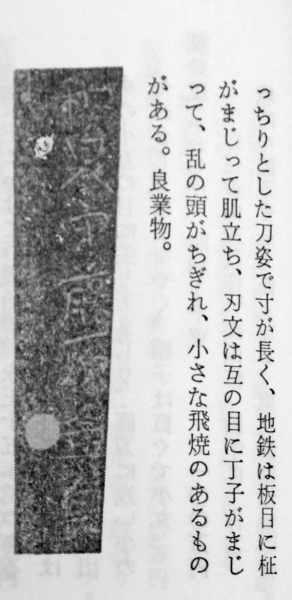 っちりとした刀姿で寸が長く、地鉄は板目に柾
がまじって肌立ち、刃文は互の目に丁子がまじ
って、乱の頭がちぎれ、小さな飛焼のあるもの
がある。良業物。